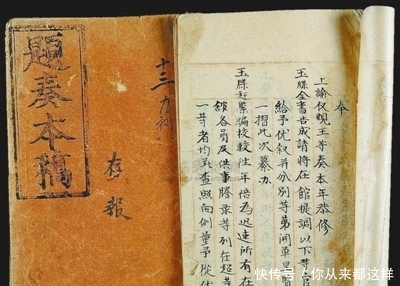 題奏本稿
十三
存報
奉
上諭仪親王等奏本年恭修
玉牒全書告成請將在館提調以下等官
給予优敘并分別等第開單呈
一摺此次纂办
玉牒赶緊編校較往年倍為迅速所有在
館各員及供事謄录等列在超等
一等者均着查照向例量予從优
快传号/你从来都这样